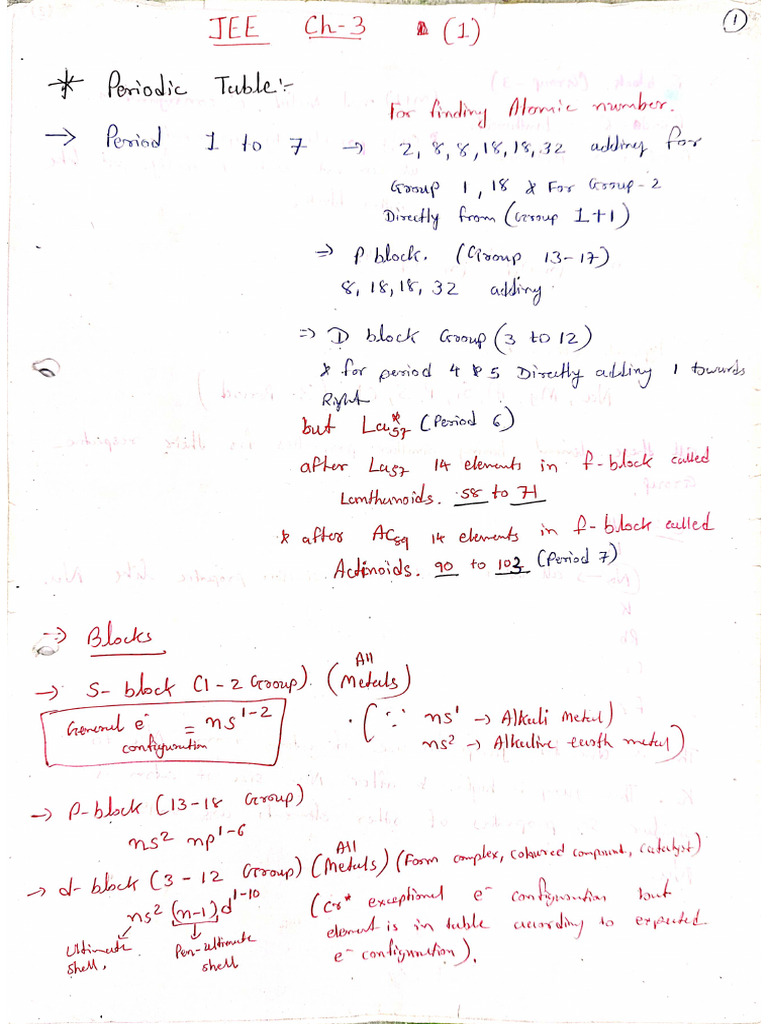 JEE Ch-3 (1)
1
* Periodic Table:-
For finding Atomic number.
→ Period 1 to 7 → 2, 8, 8, 18, 18, 32 adding for
Group 1, 18 & For Group-2
Directly from (Group 1+1)
⇒ P block. (Group 13-17)
8, 18, 18, 32 adding
⇒ D block Group (3 to 12)
* for period 4 & 5 Directly adding 1 towards
Right
but La*57 (Period 6)
after La57 14 elements in f-block called
Lanthanoids. 58 to 71
* after Ac89 14 elements in f-block called
Actinoids. 90 to 103 (Period 7)
⇒ Blocks
→ S-block (1-2 Group). (All Metals)
General e⁻ configuration = ns¹⁻²
(∵ ns¹ → Alkali Metal)
ns² → Alkaline earth metal)
→ P-block (13-18 Group)
ns² np¹⁻⁶
→ d-block (3-12 Group) (All Metals) (Form complex, coloured compound, catalyst)
ns² (n-1)d¹⁻¹⁰
(Cr* exceptional e⁻ configuration but
element is in table according to expected
e⁻ configuration).
Ultimate shell.
Pen-ultimate shell